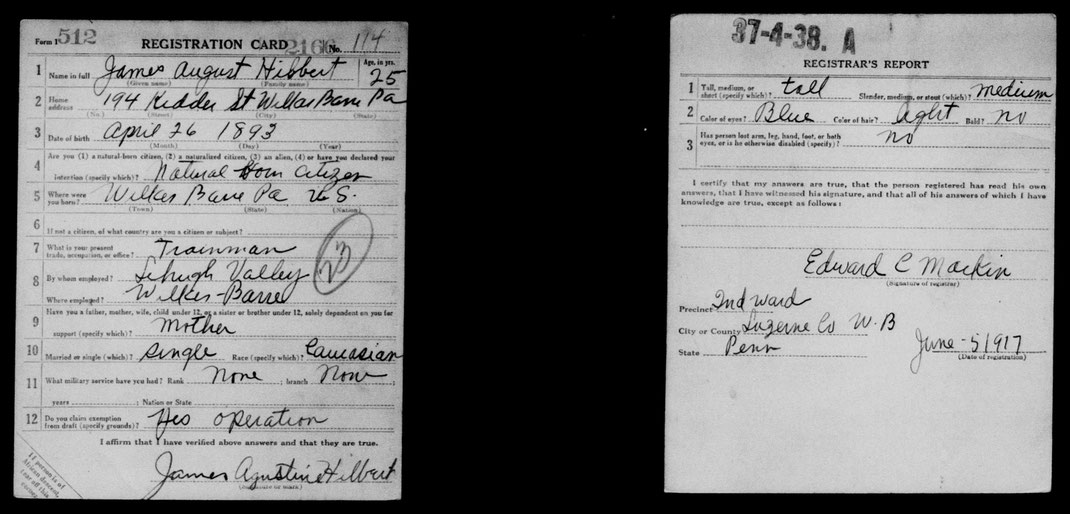 Form 1 512 REGISTRATION CARD 2166 No. 114
1 Name in full James August Hibbert Age, in yrs. 25
(Given name) (Family name)
2 Home address 194 Kidder St Wilkes Barre Pa
(No.) (Street) (City) (State)
3 Date of birth April 26 1893
(Month) (Day) (Year)
4 Are you (1) a natural-born citizen, (2) a naturalized citizen, (3) an alien, (4) or have you declared your
intention (specify which)? Natural born citizen
5 Where were you born? Wilkes Barre Pa U.S.
(Town) (State) (Nation)
6 If not a citizen, of what country are you a citizen or subject?
7 What is your present trade, occupation, or office? Trainman
23
8 By whom employed? Lehigh Valley
Where employed? Wilkes-Barre
9 Have you a father, mother, wife, child under 12, or a sister or brother under 12, solely dependent on you for
support (specify which)? Mother
10 Married or single (which)? single Race (specify which)? Caucasian
11 What military service have you had? Rank None ; branch None ;
years ; Nation or State
12 Do you claim exemption from draft (specify grounds)? Yes operation
I affirm that I have verified above answers and that they are true.
James Agustine Hilbert
(Signature or mark)
If person is of
African descent,
tear off this
corner
37-4-38. A
REGISTRAR'S REPORT
1 Tall, medium, or short (specify which)? tall Slender, medium, or stout (which)? medium
2 Color of eyes? Blue Color of hair? light Bald? no
3 Has person lost arm, leg, hand, foot, or both
eyes, or is he otherwise disabled (specify)? no
I certify that my answers are true, that the person registered has read his own
answers, that I have witnessed his signature, and that all of his answers of which I have
knowledge are true, except as follows:
Edward C Mackin
(Signature of registrar)
Precinct 2nd ward
City or County Luzerne Co W.B
State Penn
June-5 1917
(Date of registration)